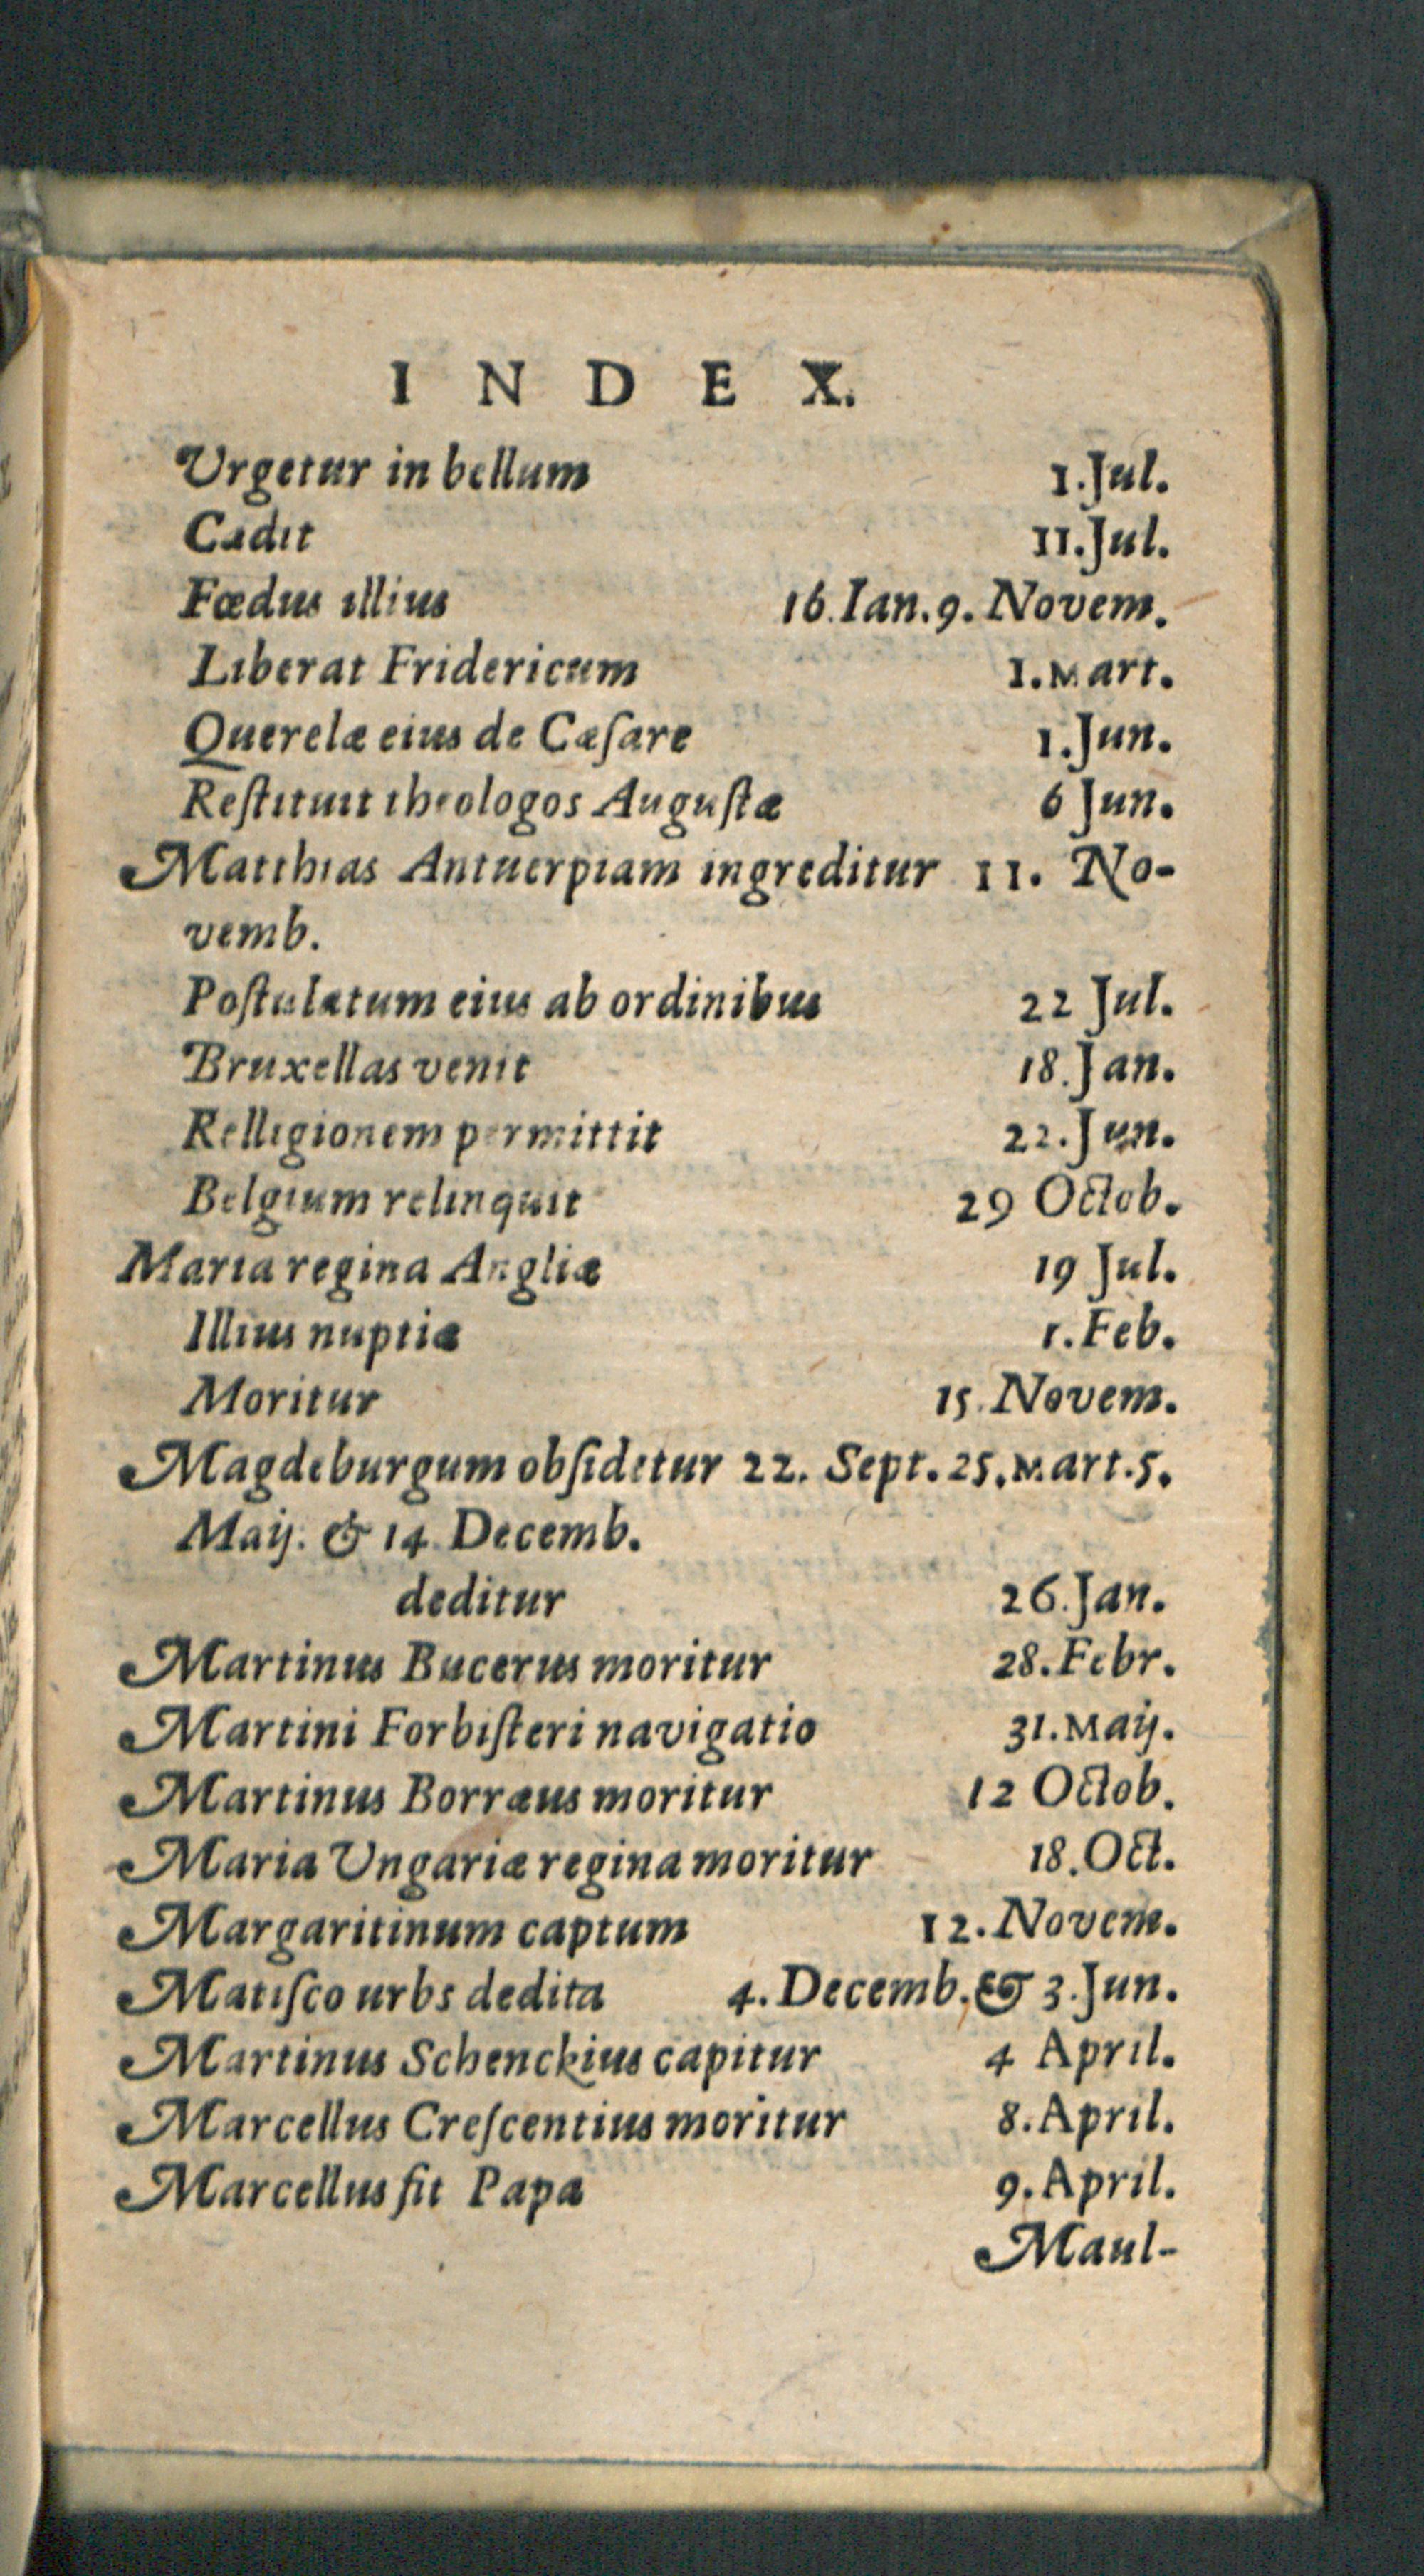 INDEX.
Urgetur in bellum 1.Jul.
Cadit 11.Jul.
Fœdus illius 16.Ian.9.Novem.
Liberat Fridericum 1.Mart.
Querelæ eius de Cæſare 1.Jun.
Reſtituit theologos Auguſtæ 6 Jun.
Matthias Antuerpiam ingreditur 11. No-
vemb.
Poſtulatum eius ab ordinibus 22 Jul.
Bruxellas venit 18.Jan.
Relligionem permittit 22.Jun.
Belgium relinquit 29 Octob.
Maria regina Angliæ 19 Jul.
Illius nuptiæ 1.Feb.
Moritur 15.Novem.
Magdeburgum obſidetur 22. Sept.25.Mart.5.
Maij. & 14 Decemb.
deditur 26.Jan.
Martinus Bucerus moritur 28.Febr.
Martini Forbiſteri navigatio 31.Maij.
Martinus Borræus moritur 12 Octob.
Maria Ungariæ regina moritur 18.Oct.
Margaritinum captum 12.Novem.
Matiſco urbs dedita 4.Decemb.& 3.Jun.
Martinus Schenckius capitur 4 April.
Marcellus Creſcentius moritur 8.April.
Marcellus fit Papa 9.April.
Maul-